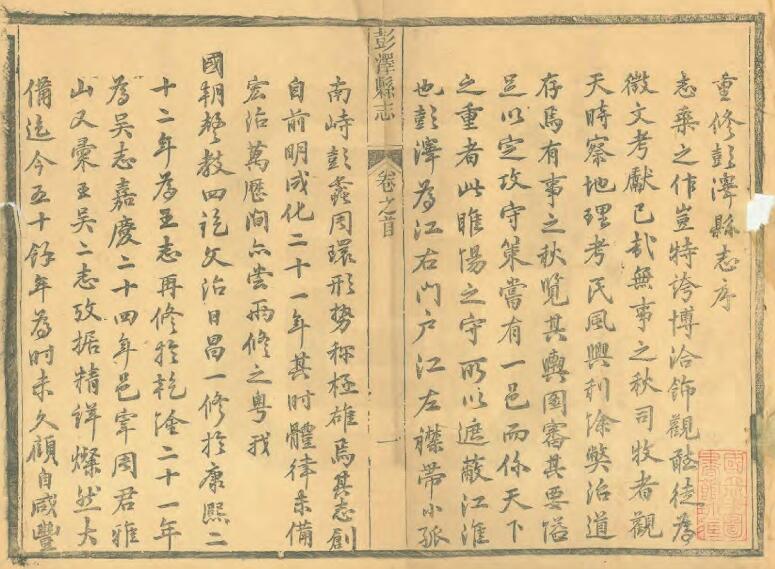 重修彭澤縣志序
志乘之作豈特誇博洽飾觀聽徒為
微文考獻已哉無事之秋司牧者觀
天時察地理考民風興利除獘治道
存焉有事之秋覽其輿圖審其要隘
足以定攻守策嘗有一邑而係天下
之重者此睢陽之守所以遮蔽江淮
也彭澤為江右門户江左襟帶小孤
彭澤縣志
卷之首
一
南峙彭蠡周環形勢稱極雄焉其志創
自前明成化二十一年其时體律未備
宏治萬歷间亦嘗兩修之粤我
國朝聲教四訖文治日昌一修於康熙二
十二年為王志再修於乾隆二十一年
為吴志嘉慶二十四年邑宰周君雅
山又彙王吴二志攷据精詳燦然大
備迄今五十餘年為时未久顧自咸豐